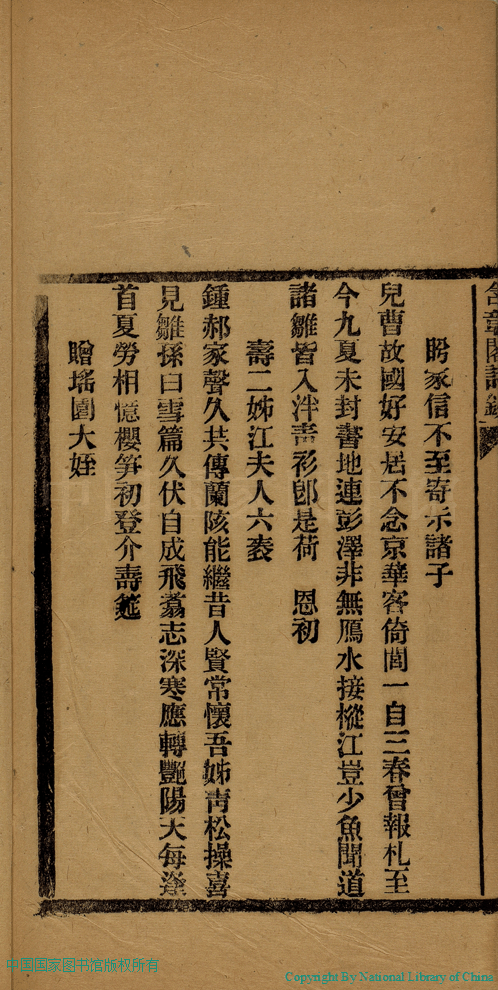 含章閣詩鈔
盻家信不至寄示諸子
兒曹故國好安居不念京華客倚閭一自三春曾報札至
今九夏未封書地連彭澤非無鴈水接樅江豈少魚聞道
諸雛皆入泮靑衫卽是荷　恩初
壽二姊江夫人六袠
鍾郝家聲久共傳蘭陔能繼昔人賢常懷吾姊靑松操喜
見雛孫白雪篇久伏自成飛翥志深寒應轉艷陽天每逢
首夏勞相憶櫻筍初登介壽筵
贈瑤園大姪
中国国家图书馆版权所有
Copyright By National Library of China